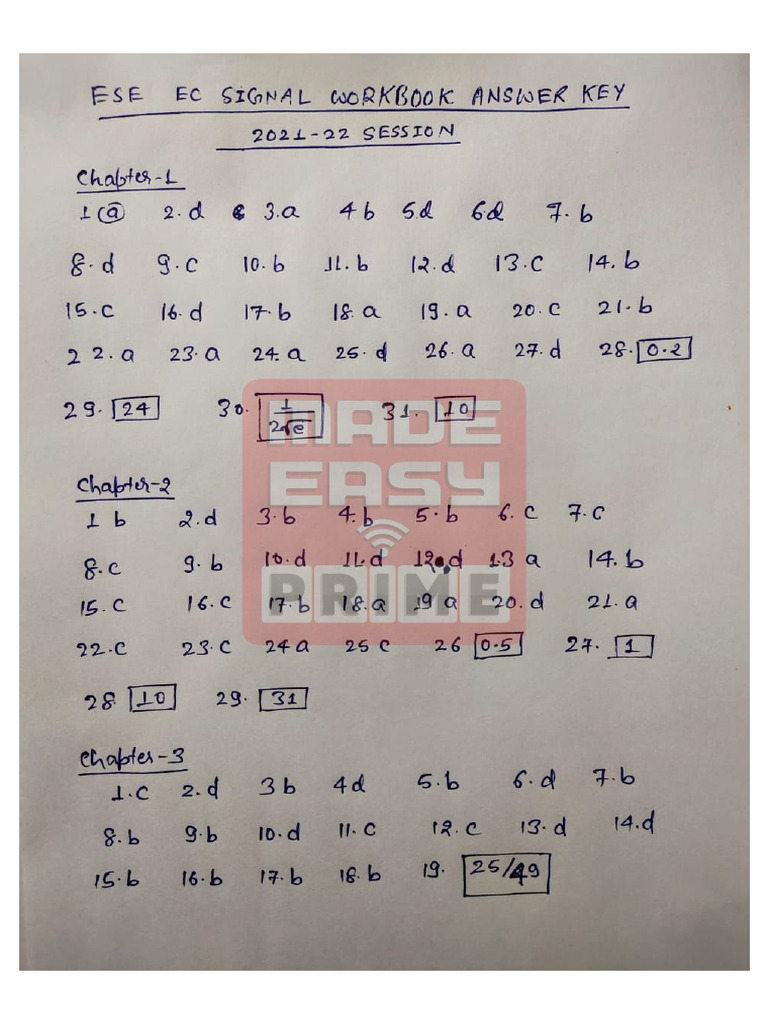 ESE EC SIGNAL WORKBOOK ANSWER KEY
2021-22 SESSION
Chapter-1
1 (a) 2. d 3. a 4 b 5. d 6. d 7. b
8. d 9. c 10. b 11. b 12. d 13. c 14. b
15. c 16. d 17. b 18. a 19. a 20. c 21. b
22. a 23. a 24. a 25. d 26. a 27. d 28. 0.2
29. 24 30. 1/2√e 31. 10
MADE
EASY
PRIME
Chapter-2
1 b 2. d 3. b 4. b 5. b 6. c 7. c
8. c 9. b 10. d 11. d 12. d 13 a 14. b
15. c 16. c 17. b 18. a 19 a 20. d 21. a
22. c 23. c 24 a 25 c 26 0.5 27. 1
28 10 29. 31
Chapter-3
1. c 2. d 3 b 4 d 5. b 6. d 7. b
8. b 9. b 10. d 11. c 12. c 13. d 14. d
15. b 16. b 17. b 18. b 19. 25/49